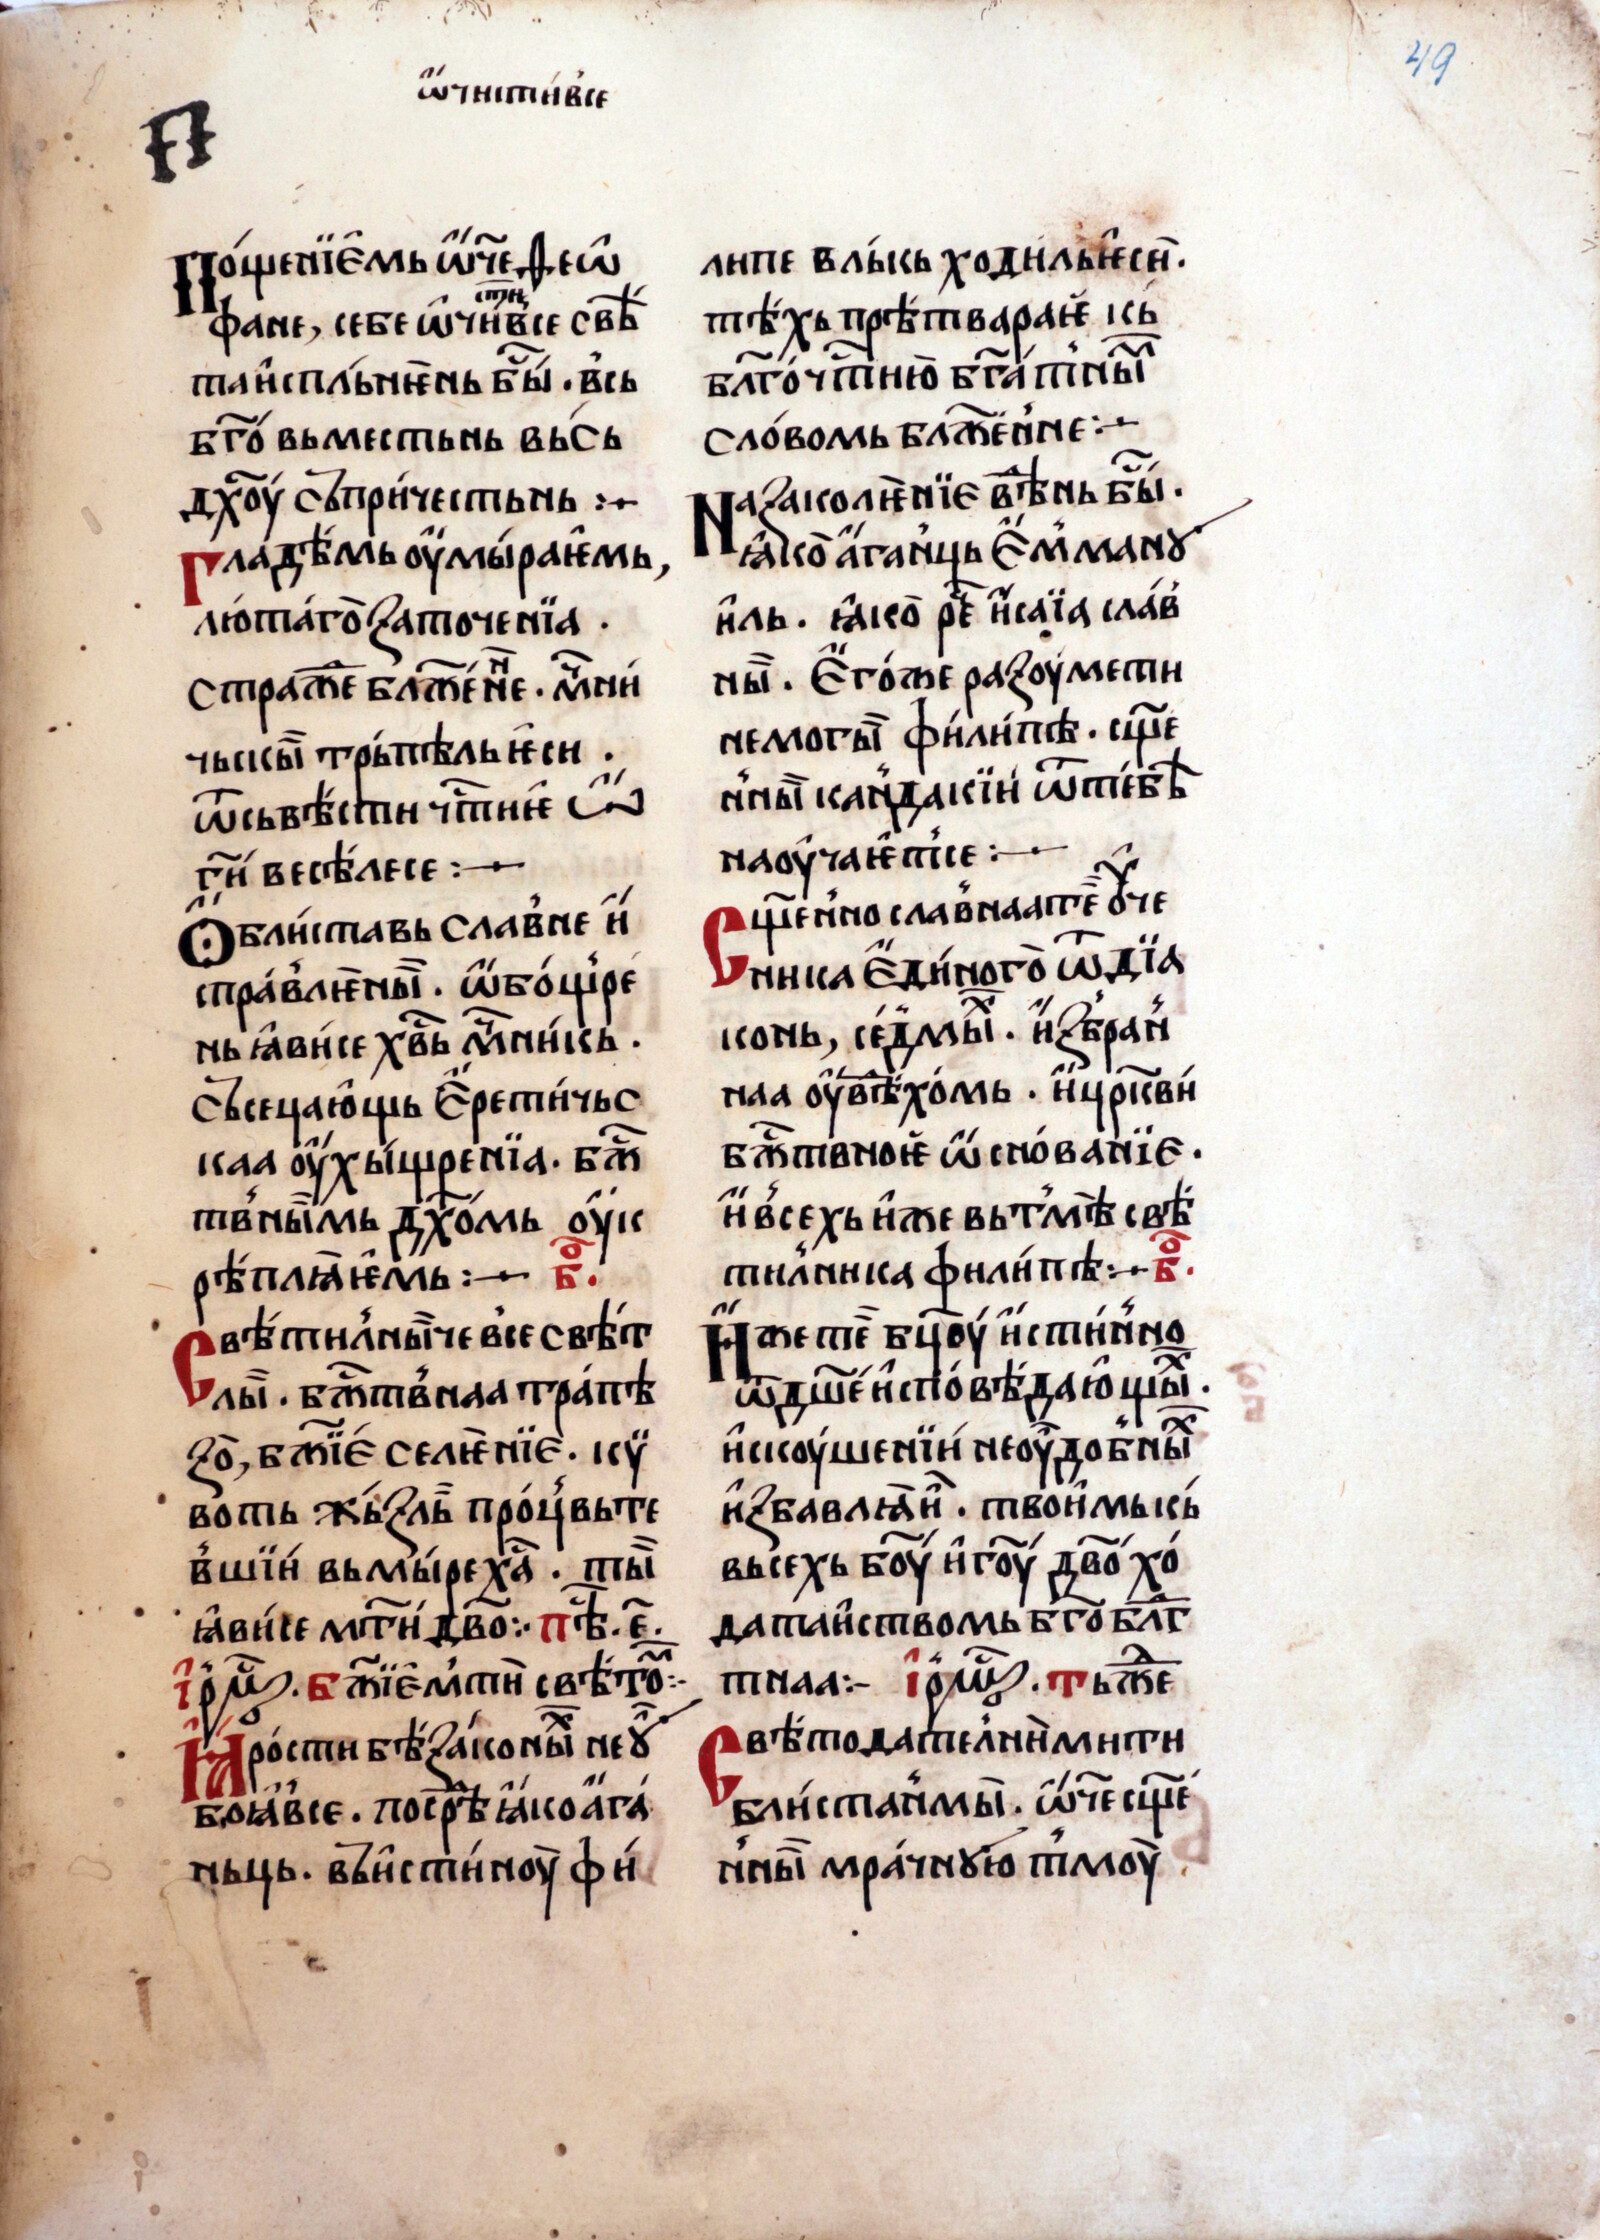 49
ѡ҆́чистив̾се
П
По́щенїе҆мь ѡ҆́ч҃е ѳеѡ҆
фане, себе ѡ҆чи́стив̾се свѣ́
таи҆спль́нѥнь бы́с҃ . в̾сь
бг҃о́ вьместьнь вьс́ь
дх҃оу́ съпри́честьнь :—
Гла́дѣмь оу҆мы́раѥмь,
лю́та́го заточенїа .
страж҃е блж҃ен́не . мч҃ни́
чьскы̏ трь́пѣль ѥ҆си .
ѿсьвѣ́сти чт҃ниѥ ѡ҆́
гн҃и́ весѣ́лесе :—
Ѡ҆бли́ставь слав̾не и҆́
спра́в̾лѥны̏ . ѡ҆бо́щ̾ре
нь ꙗ҆ви́се хв҃ь мч҃ни́кь .
съсецаю҆щь е҆́рети́чьс
каа оу҆́хыщ́ренїа . бж҃
тв̾ны̏мь дх҃о́мь оу҆́к
рѣ́плꙗѥ҆мь :— б҃о .
Свѣ́тил̾ны̏че в̾се свѣ́т
лы̏ . бж҃тв̾наа тра́пѣ
зо̀, бж҃їе́ селѥ҆нїе . кѵ̈
воть жь́зль про́ц̾вьте
в̾шїи́ вьмы́ре х҃а . ты̏
ꙗ҆ви́се мт҃и́ дв҃о :· пѣ҃ . е҃ .
і҆рмⷭ҇ . бж҃їе҆м̾ти свѣ́то҃м :·
Ꙗ҆́рости бѣ́за́коны̏х неꙋ
боꙗ҆в̾се . посрⷣѣ ꙗ҆́ко а҆́га́
ньць . въи҆сти́ноу̀ фи́
липе вль́кь ходи́ль ѥ҆си̏ .
тѣ́хь прѣ́твараѥ кь
блг҃о́чт҃ню̀ бг҃а́т̾ны̏м
сло́вомь блж҃е́н̾не :—
На заколѥ҆нїе веⷣѣнь бы́с҃ .
ꙗ҆́ко̀ а҆́ган̾ць е҆́м̾манꙋ
и҆ль . ꙗ҆ко̀ рⷱ҇е и҆́саїа сла́в̾
ны̏ . е҆́го́же разоу́мети
немогы̏ фи́ли́пѣ . сщ҃е
н̾ны̏ кан̾дакїи́ ѿте́бѣ̀
наоу҆чаѥт̾се :—
Сщ҃ен̾но слав̾наа те҃ ꙋ҆че
ника е҆́ди́ного̀ ѿдїа
конь, се́дмы̏х . и҆́з̾бран̾
наа оу҆́вѣхо́мь . и҆́црк҃ви́
бж҃твноѥ ѡ҆́сно́ванїе .
и҆́в̾сехь и҆же вьт̾мѣ свѣ́
тил̾ника фили́пѣ :— б҃о .
И҆́же те҃ бц҃оу́ и҆сти́н̾но
ѿдш҃е и҆спо́вѣ́даю҆щы̏х .
и҆скоу́шенїи́ неоу҆до́б̾ны̏х
и҆збавлꙗѥ҆и . твои҆мь кь́
вьсехь бо҃у́ и҆ го҃у́ дв҃о́ хо́
дата́йствомь бг҃о́блг҃
тнаа :- і҆рмⷭ҇ . Тьж҃е
Свѣ́тодател̾ними ти
бли́стан̾мы̏ . ѡ҆́ч҃е сщ҃е́
н̾ны̏ мра́чнꙋю҆ т̾моу̀